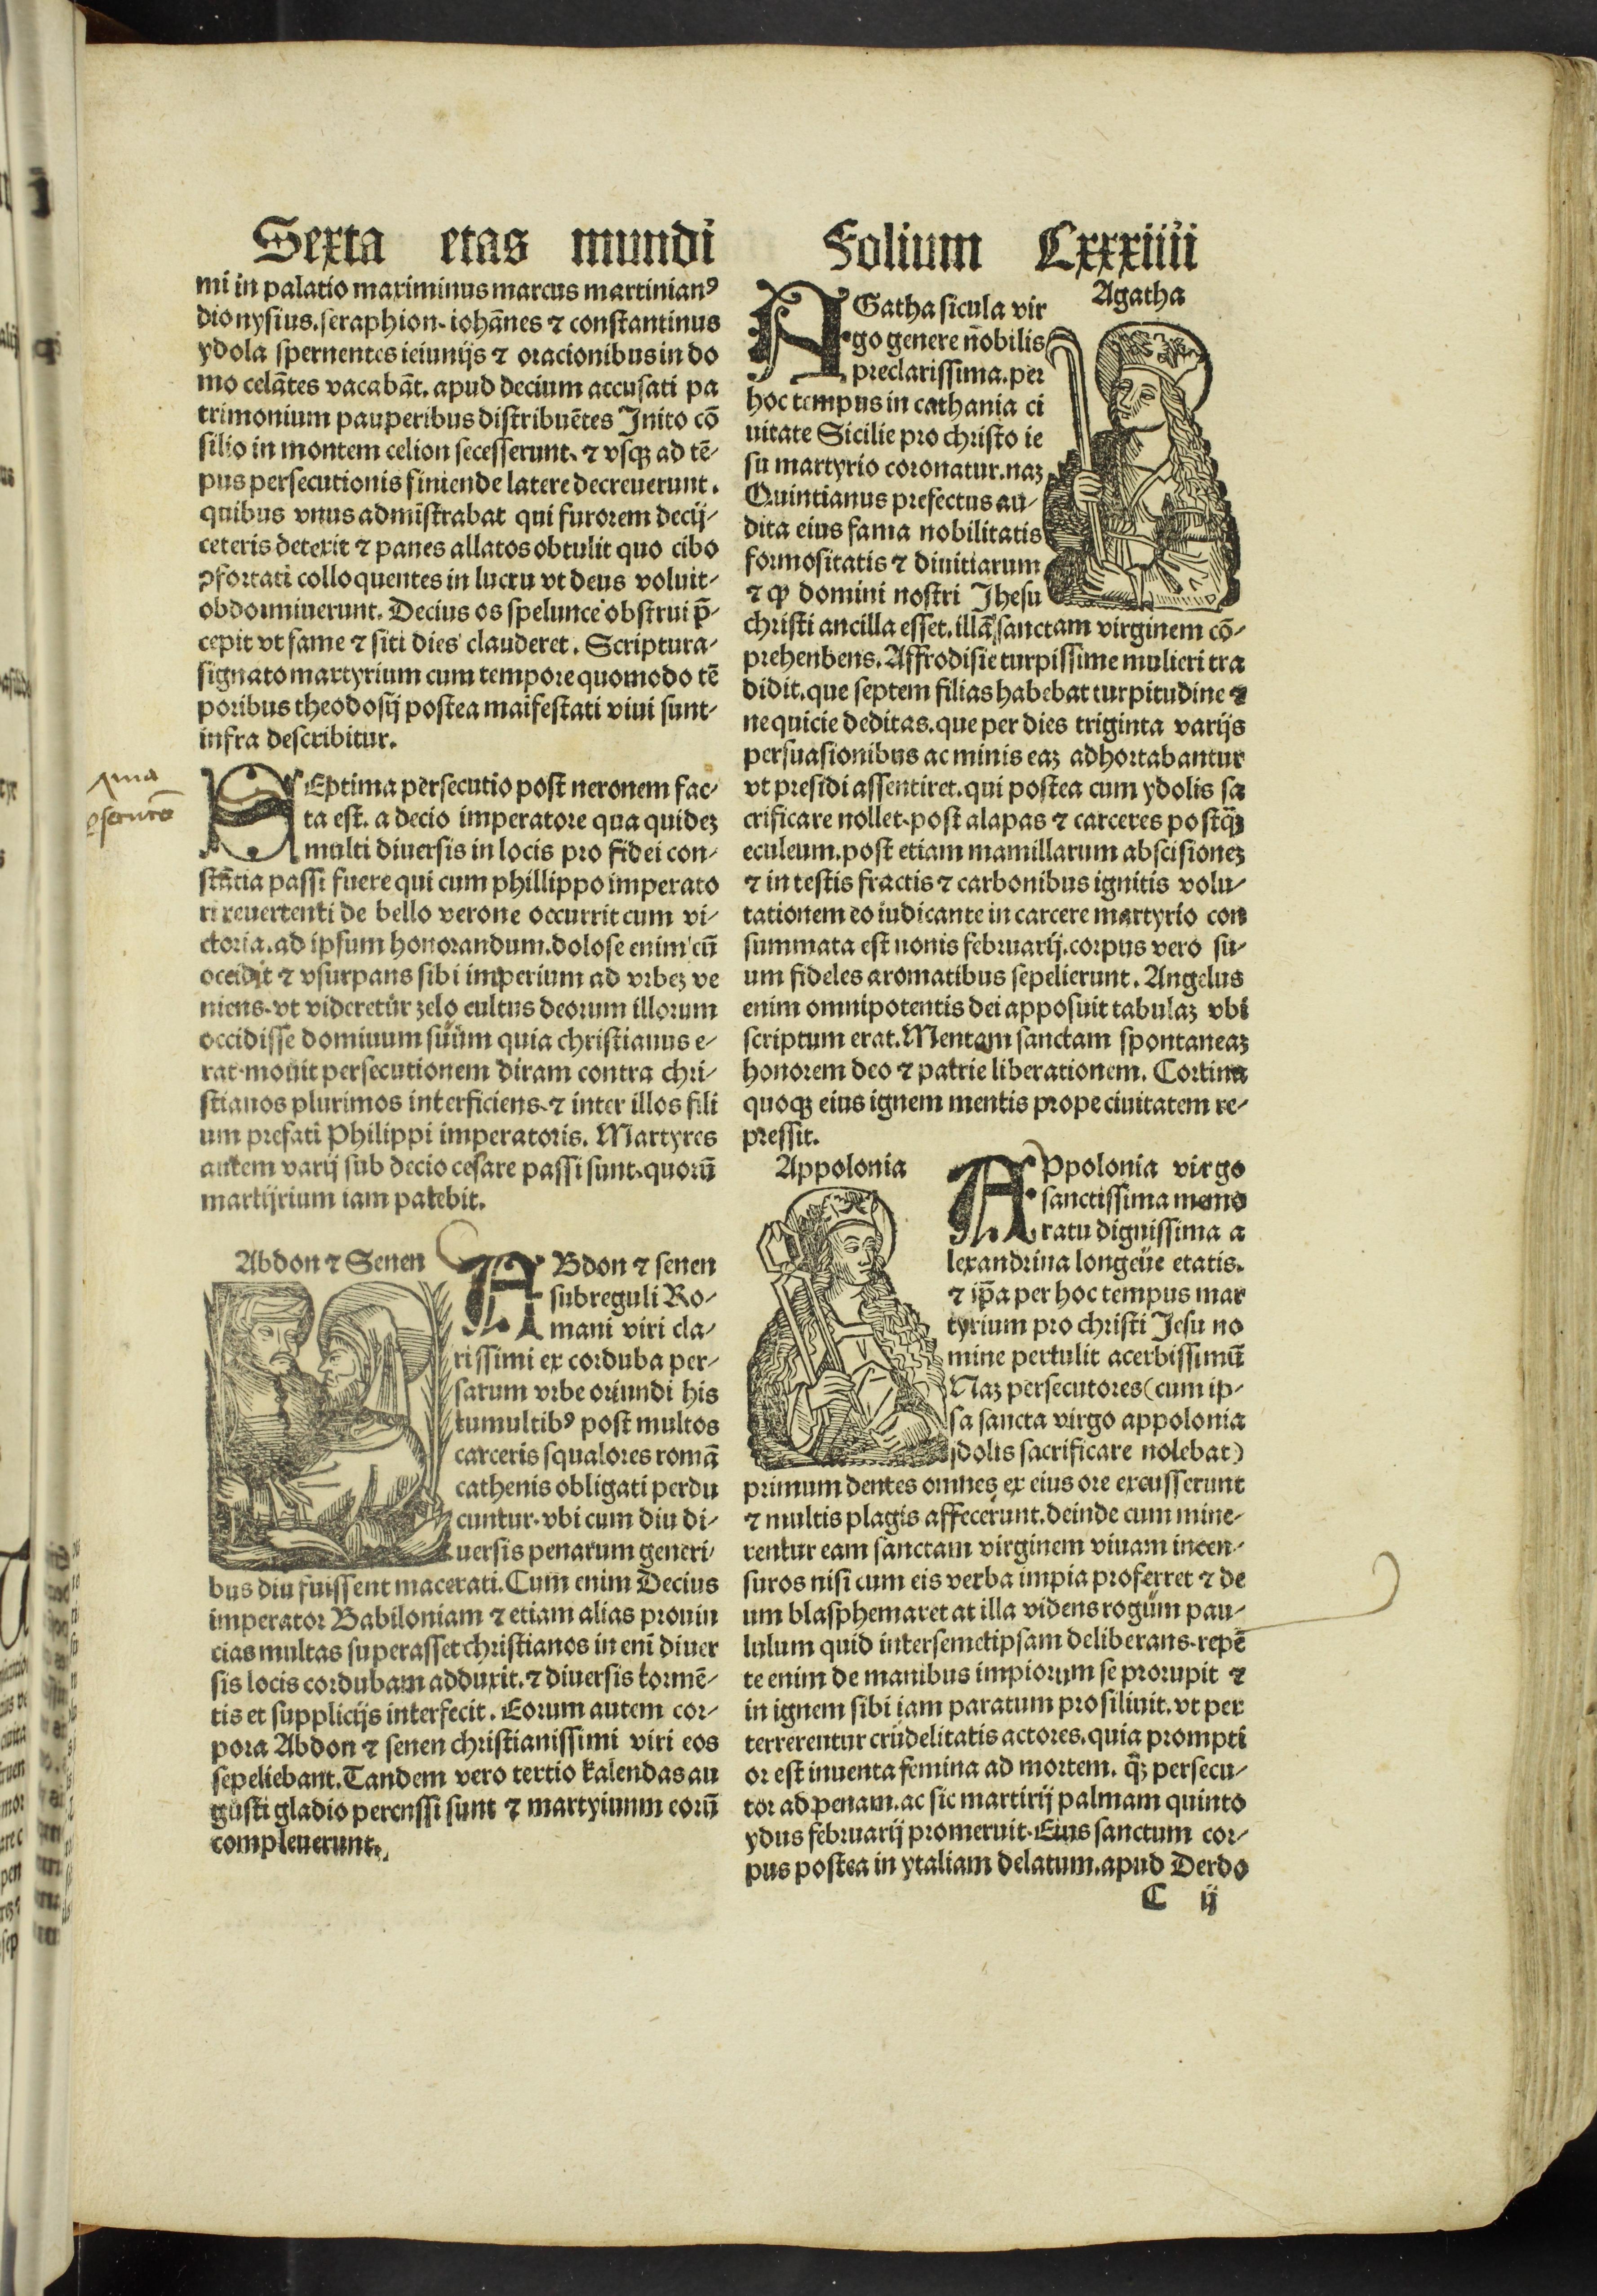 Sexta etas mundi
mi in palatio maximinus marcus martinianꝰ
dionysius. seraphion. iohānes ⁊ constantinus
ydola spernentes ieiunijs ⁊ oracionibus in do
mo celātes vacabāt. apud decium accusati pa
trimonium pauperibus distribuētes Inito cō
silio in montem celion secesserunt. ⁊ vsqꝫ ad tē-
pus persecutionis finiende latere decreuerunt.
quibus vnus admīstrabat qui furorem decij-
ceteris detexit ⁊ panes allatos obtulit quo cibo
ꝯfortati colloquentes in luctu vt deus voluit-
obdormiuerunt. Decius os spelunce obstrui p̄-
cepit vt fame ⁊ siti dies clauderet. Scriptura-
signato martyrium cum tempore quomodo tē
poribus theodosij postea maifestati viui sunt-
infra describitur.
SEptima persecutio post neronem fac-
ta est. a decio imperatore qua quideꝫ
multi diuersis in locis pro fidei con-
stātia passi fuere qui cum phillippo imperato
ri reuertenti de bello verone occurrit cum vi-
ctoria. ad ipsum honorandum. dolose enim eū
occidit ⁊ vsurpans sibi imperium ad vrbeꝫ ve
niens. vt videretur zelo cultus deorum illorum
occidisse domiuum suum quia christianus e-
rat. mouit persecutionem diram contra chri-
stianos plurimos interficiens. ⁊ inter illos fili
um prefati Philippi imperatoris. Martyres
autem varij sub decio cesare passi sunt. quorū
martijrium iam patebit.
Abdon ⁊ Senen
ABdon ⁊ senen
subreguli Ro-
mani viri cla-
rissimi ex corduba per-
sarum vrbe oriundi his
tumultibꝰ post multos
carceris squalores romā
cathenis obligati perdu
cuntur. vbi cum diu di-
uersis penarum generi-
bus diu fuissent macerati. Cum enim Decius
imperator Babiloniam ⁊ etiam alias prouin
cias multas superasset christianos in eni diuer
sis locis cordubam adduxit. ⁊ diuersis tormē-
tis et supplicijs interfecit. Eorum autem cor-
pora Abdon ⁊ senen christianissimi viri eos
sepeliebant. Tandem vero tertio kalendas au
gusti gladio percussi sunt ⁊ martyiunm eorū
compleuerunt.
Folium Cxxxiiii
Agatha
AGatha sicula vir
go genere nobilis
preclarissima. per
hoc tempus in cathania ci
uitate Sicilie pro christo ie
su martyrio coronatur. naꝫ
Quintianus prefectus au-
dita eius fama nobilitatis
formositatis ⁊ diuitiarum
⁊ ꝙ domini nostri Jhesu
christi ancilla esset. illā sanctam virginem cō-
prehenbens. Affrodisie turpissime mulieri tra
didit. que septem filias habebat turpitudine ⁊
nequicie deditas. que per dies triginta varijs
persuasionibus ac minis eaꝫ adhortabantur
vt presidi assentiret. qui postea cum ydolis sa
crificare nollet. post alapas ⁊ carceres postqꝫ̄
eculeum. post etiam mamillarum abscisioneꝫ
⁊ in testis fractis ⁊ carbonibus ignitis volu-
tationem eo iudicante in carcere martyrio con
summata est nonis februarij. corpus vero su-
um fideles aromatibus sepelierunt. Angelus
enim omnipotentis dei apposuit tabulaꝫ vbi
scriptum erat. Mentem sanctam spontaneaꝫ
honorem deo ⁊ patrie liberationem. Cortina
quoqꝫ eius ignem mentis prope ciuitatem re-
pressit.
Appolonia
APpolonia virgo
sanctissima memo
ratu dignissima a
lexandrina longeue etatis.
⁊ ip̄a per hoc tempus mar
tyrium pro christi Jesu no
mine pertulit acerbissimū
Naꝫ persecutores (cum ip-
sa sancta virgo appolonia
jdolis sacrificare nolebat)
primum dentes omnes ex eius ore excusserunt
⁊ multis plagis affecerunt. deinde cum mine-
rentur eam sanctam virginem viuam incen-
suros nisi cum eis verba impia proferret ⁊ de
um blasphemaret at illa videns rogum pau-
lulum quid inter semetipsam deliberans. repē
te enim de manibus impiorum se prorupit ⁊
in ignem sibi iam paratum prosiliuit. vt per
terrerentur crudelitatis actores. quia prompti
or est inuenta femina ad mortem. qꝫ̄ persecu-
tor ad penam. ac sic martirij palmam quinto
ydus februarij promeruit. Eius sanctum cor-
pus postea in ytaliam delatum. apud Derdo
C ij